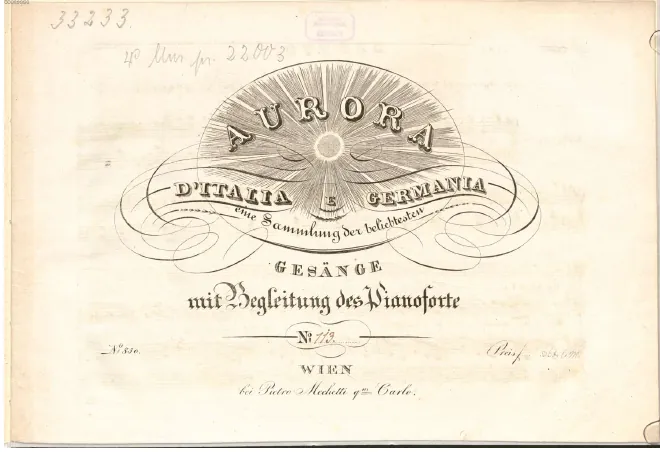 33233.
4° Mus. pr. 22003
AURORA
D'ITALIA E GERMANIA
eine Sammlung der beliebtesten
GESÄNGE
mit Begleitung des Pianoforte
No. 113.
No. 850.
Preis f
WIEN
bei Pietro Mechetti qm. Carlo.